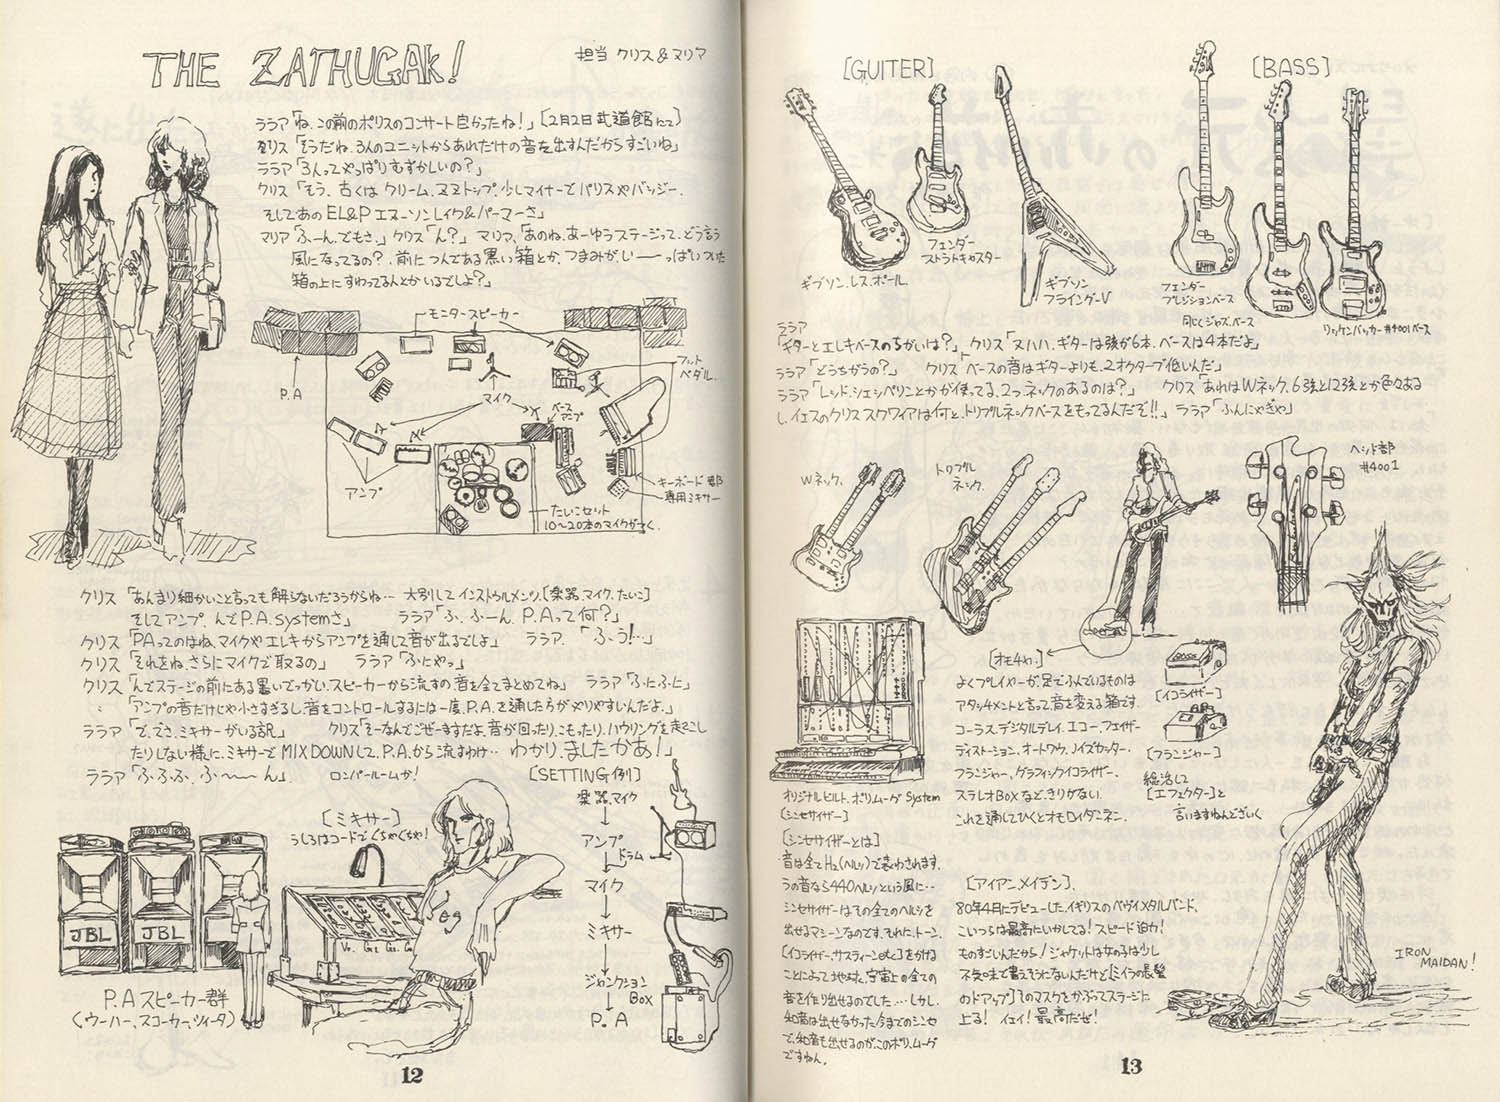 THE ZATHUGAK!
担当 クリス&マリア
ララア「ね、この前のポリスのコンサート良かったね!」[2月2日武道館にて]
クリス「そうだね、3人のユニットからあれだけの音を出すんだからすごいね」
ララア「3人ってやっぱりむずかしいの?」
クリス「そう、古くはクリーム、ズズトップ、少しマイナーでパリスやバッジー、
そしてあのEL&Pエマーソンレイク&パーマーさ」
マリア「ふーん、でもさ、」クリス「ん?」 マリア、「あのね、あーゆうステージって、どう言う
風になってるの?、前につんである黒い箱とか、つまみがいーーっぱいついた
箱の上にすわってる人とかいるでしょ?」
モニタースピーカー
フットペダル
P.A
マイク
ベースアンプ
アンプ
キーボード郡
専用ミキサー
たいこセット
10〜20本のマイクがつく、
クリス「あんまり細かいこと言っても解らないだろうからね… 大別してインストゥルメンツ、[楽器、マイク、たいこ]
そしてアンプ、んでP.A.systemさ」 ララア「ふ、ふーん、P.Aって何?」
クリス「PAってのはね、マイクやエレキからアンプを通して音が出るでしょ」 ララア、「ふう!…」
クリス「それをね、さらにマイクで取るの」 ララア「ふにゃっ」
クリス「んでステージの前にある黒いでっかい、スピーカーから流すの音を全てまとめてね」 ララア「ふにふに」
〃 「アンプの音だけじゃ小さすぎるし、音をコントロールするには一度、P.A.を通したらがやりやすいんだよ。」
ララア「で、でさ、ミキサーがいる訳」 クリス「そーなんでござーますだよ、音が回ったり、こもったり、ハウリングを起こし
たりしない様に、ミキサーでMIXDOWNして、P.A.から流すわけ… わかり、ましたかあ!」
ララア「ふ、ふ、ふ、ふ〜〜ん」 ロンパールームか!
[SETTING例]
楽器、マイク
アンプ
ドラム
マイク
ミキサー
ジャンクション
Box
P.A
[ミキサー]
うしろはコードでぐちゃぐちゃ!
JBL
JBL
P.Aスピーカー群
(ウーハー、スコーカー、ツィータ)
12
[GUITER]
[BASS]
ギブソン、レス、ポール
フェンダー
ストラトキャスター
ギブソン
フライングーV
フェンダー
プレジションベース
同じくジャズ、ベース
リッケンバッカー#4001ベース
ララア
「ギターとエレキベースのちがいは?」 クリス「ヌハハ、ギターは弦が6本、ベースは4本だよ」
ララア「どうちがうの?」 クリス「ベースの音はギターよりも、2オクターブ低いんだ」
ララア「レッド、ジェッペリンとかが使ってる、2つネックのあるのは?」 クリス「あれはWネック、6弦と12弦とか色々ある
し、イエスのクリススクワイアは何と、トリプルネックベースをもってるんだぞ!!」 ララア「ふんにゃぎゃ」
Wネック、
トリプル
ネック、
ヘッド部
#4001
[オモチャ、]
よくプレイヤーが、足でふんでいるのは
アタッチメントと言って音を変える箱です。
コーラス、デジタルデレイ、エコー、フェイザー
ディストーション、オートワウ、ノイズカッター、
フランジャー、グラフィックイコライザー、
ステレオBoxなど、きりがない、
これを通してひくとオモロイダニネー、
[イコライザー]
[フランジャー]
総活して
[エフェクター]と
言いますねんどすいく
オリジナルビルト、ポリムーグSystem
[シンセサイザー]
[シンセサイザーとは]
音は全てHz(ヘルツ)で表わされます、
ラの音なら440ヘルツという風に…
シンセサイザーはその全てのヘルツを
出せるマシーンなのです、それに、トーン、
[イコライザー、サスティーンetc]をかける
ことによって地球、宇宙上の全ての
音を作り出せるのでした…しかし、
和音は出せなかった、今までのシンセ
で、和音も出せるのが、このポリ、ムーグ
ですねん。
[アイアンメイデン]、
80年4月にデビューした、イギリスのヘヴィメタルバンド、
こいつらは最高にいかしてる!スピード迫力!
ものすごいんだから!ジャケットはなかるは少し
不気味で書えそうにないんだけど[ミイラの長髪
のドアップ]このマスクをかぶってステージに
上る! イェイ!最高だぜ!
IRON
MAIDAN!
13